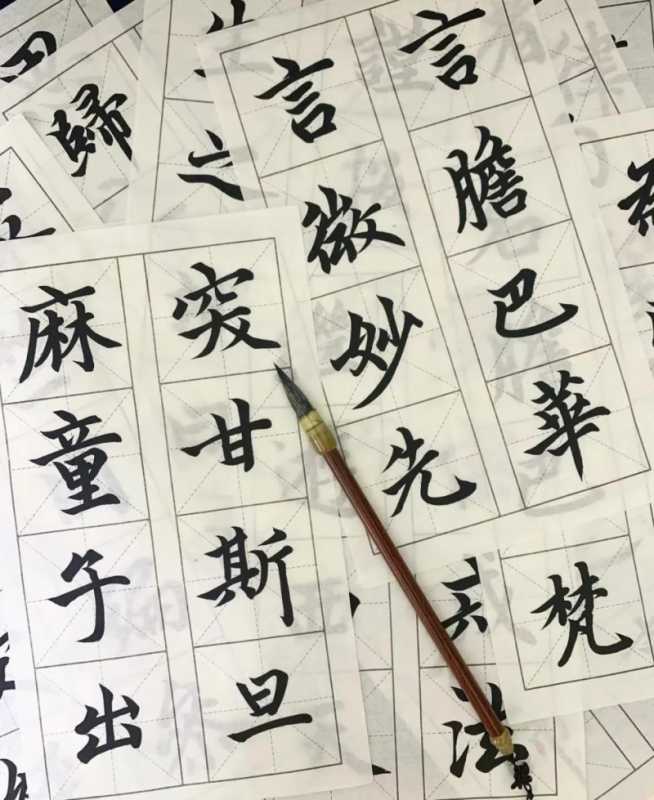 言膽巴華
言微妙先
突甘斯旦
麻童子出
歸
梵
法